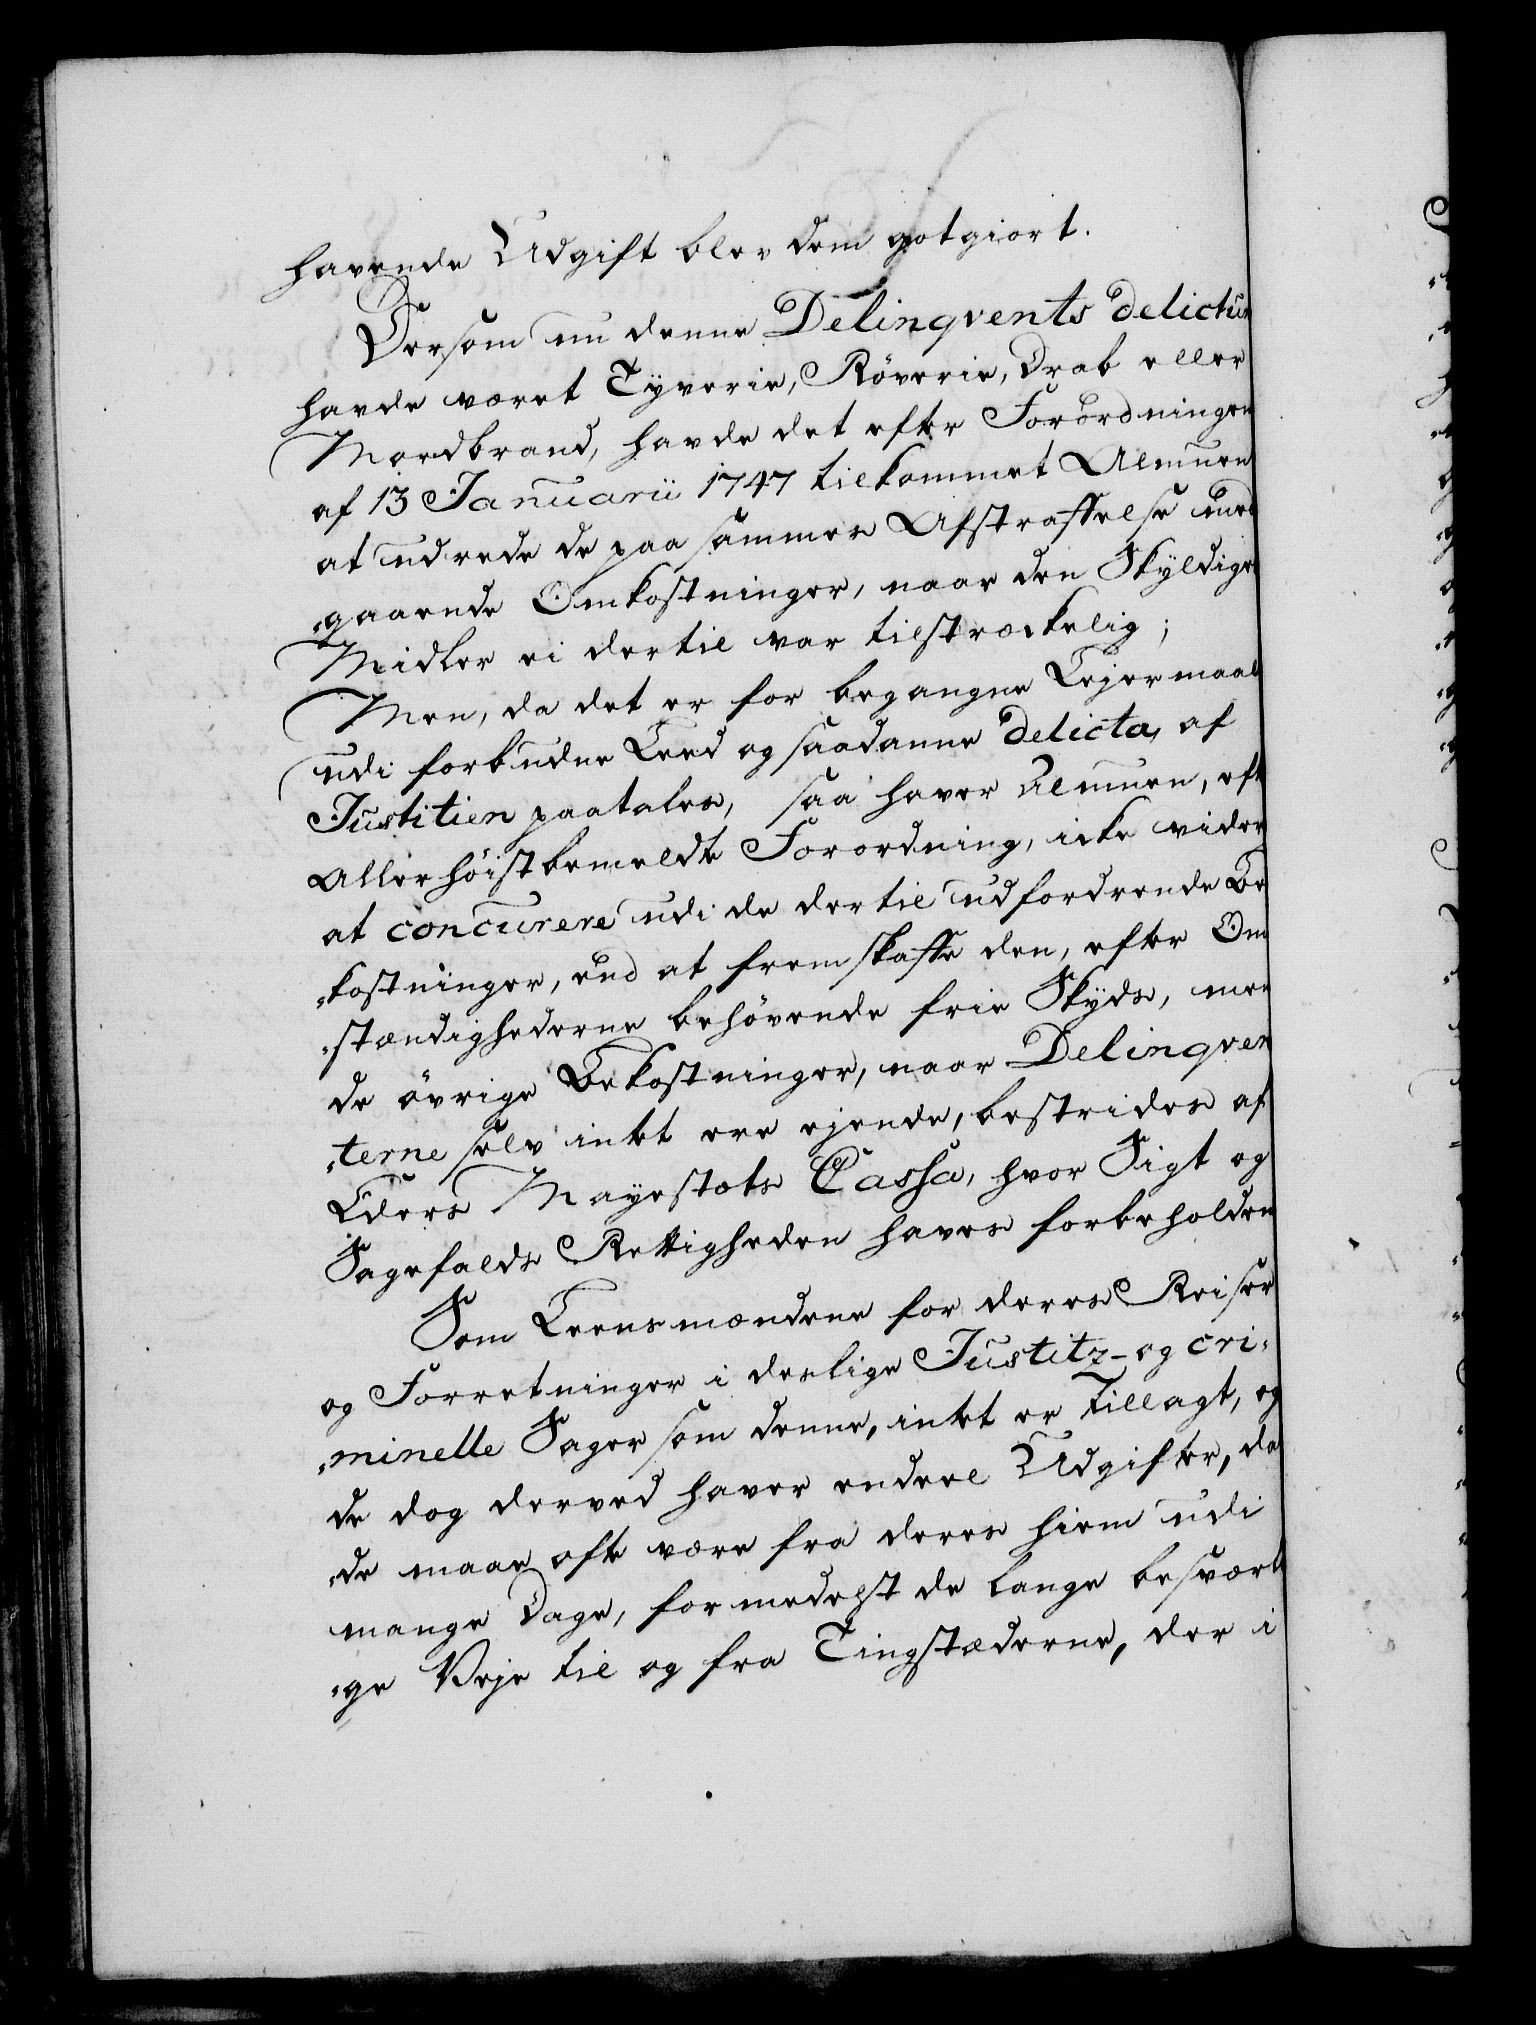 havende Udgift blev dem gotgiort.
Dersom nu denne Delinqvents delictum
havde været Tyverie, Röverie, Drab eller
Mordbrand, havde det efter Forordningen
af 13 Januarii 1747 tilkommet Almuen
at udrede de paa sammes Afstraffelse med
„gaaende Omkostninger, naar den Skyldiges
Midler ei dertil var tilstrækelig;
Men, da det er for begangne Lejermaal
udi forbudne Leed og saadanne delicta, af
Justitien paatales, saa haver Almuen, efter
Allerhöistbemeldte Forordning, icke videre
at concurere udi de dertil udfordrende Be
„kostninger, end at fremskaffe den, efter Om
„stændighederne behövende frie Skyds, men
de övrige Bekostninger, naar Delinqven
„terne selv intet ere ejende, bestrides af
Eders Mayestæts Cassa, hvor Sigt og
Sagefalds Rettigheden haves forbeholden
Som Leensmændene for deres Reiser
og Forretninger i deslige Justitz- og cri„
„minelle Sager som denne, intet er tillagt, og
de dog derved haver endeel Udgifter, da
„de maae ofte være fra deres hiem udi
mange Dage, formedelst de lange besværli
„ge Veje til og fra Tingstæderne, der i